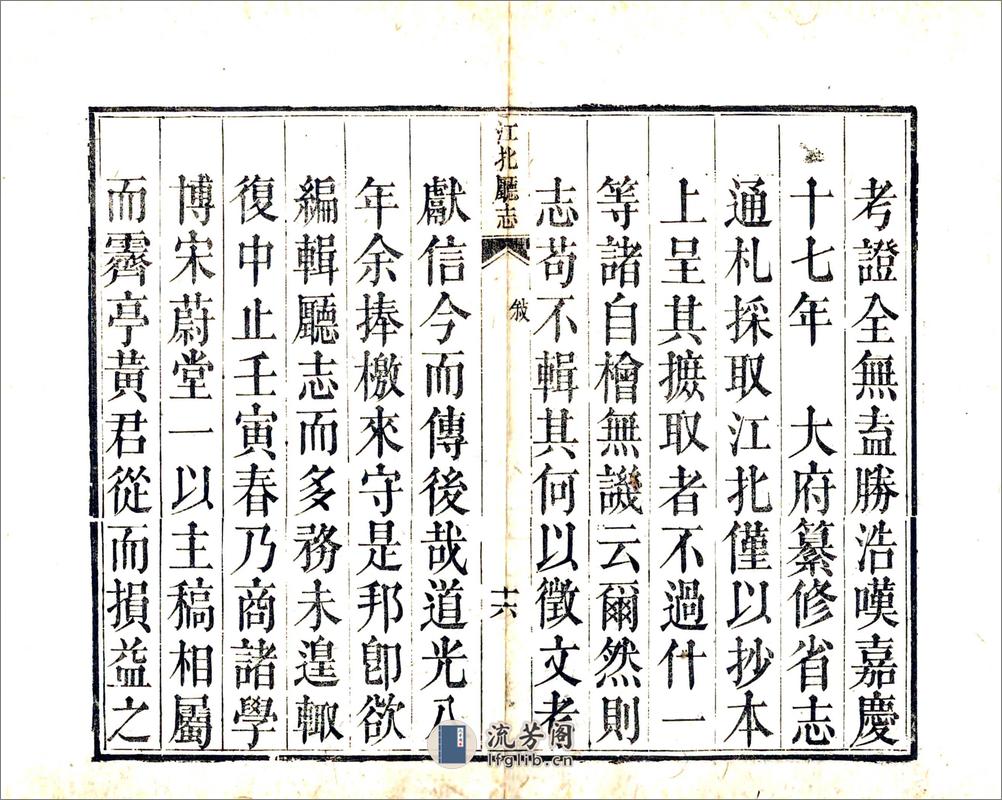 考證全無盍勝浩嘆嘉慶
十七年　大府纂修省志
通札採取江北僅以抄本
上呈其摭取者不過什一
等諸自檜無譏云爾然則
志苟不輯其何以徵文考
江北廳志
敘
十六
獻信今而傳後哉道光八
年余捧檄來守是邦卽欲
編輯廳志而多務未遑輙
復中止壬寅春乃商諸學
博宋蔚堂一以主稿相屬
而霽亭黃君從而損益之
流芳阁
lfglib.cn